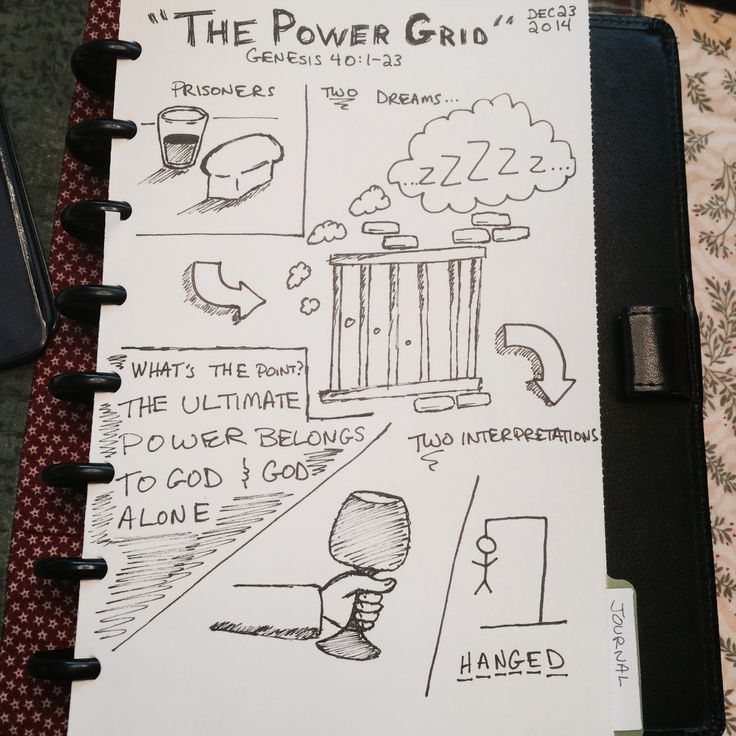 "THE POWER GRID"
DEC 23
2014
GENESIS 40:1-23
PRISONERS
TWO DREAMS...
...zZZZZz...
WHAT'S THE POINT?
THE ULTIMATE
POWER BELONGS
TO GOD & GOD
ALONE
TWO INTERPRETATIONS
HANGED
JOURNAL